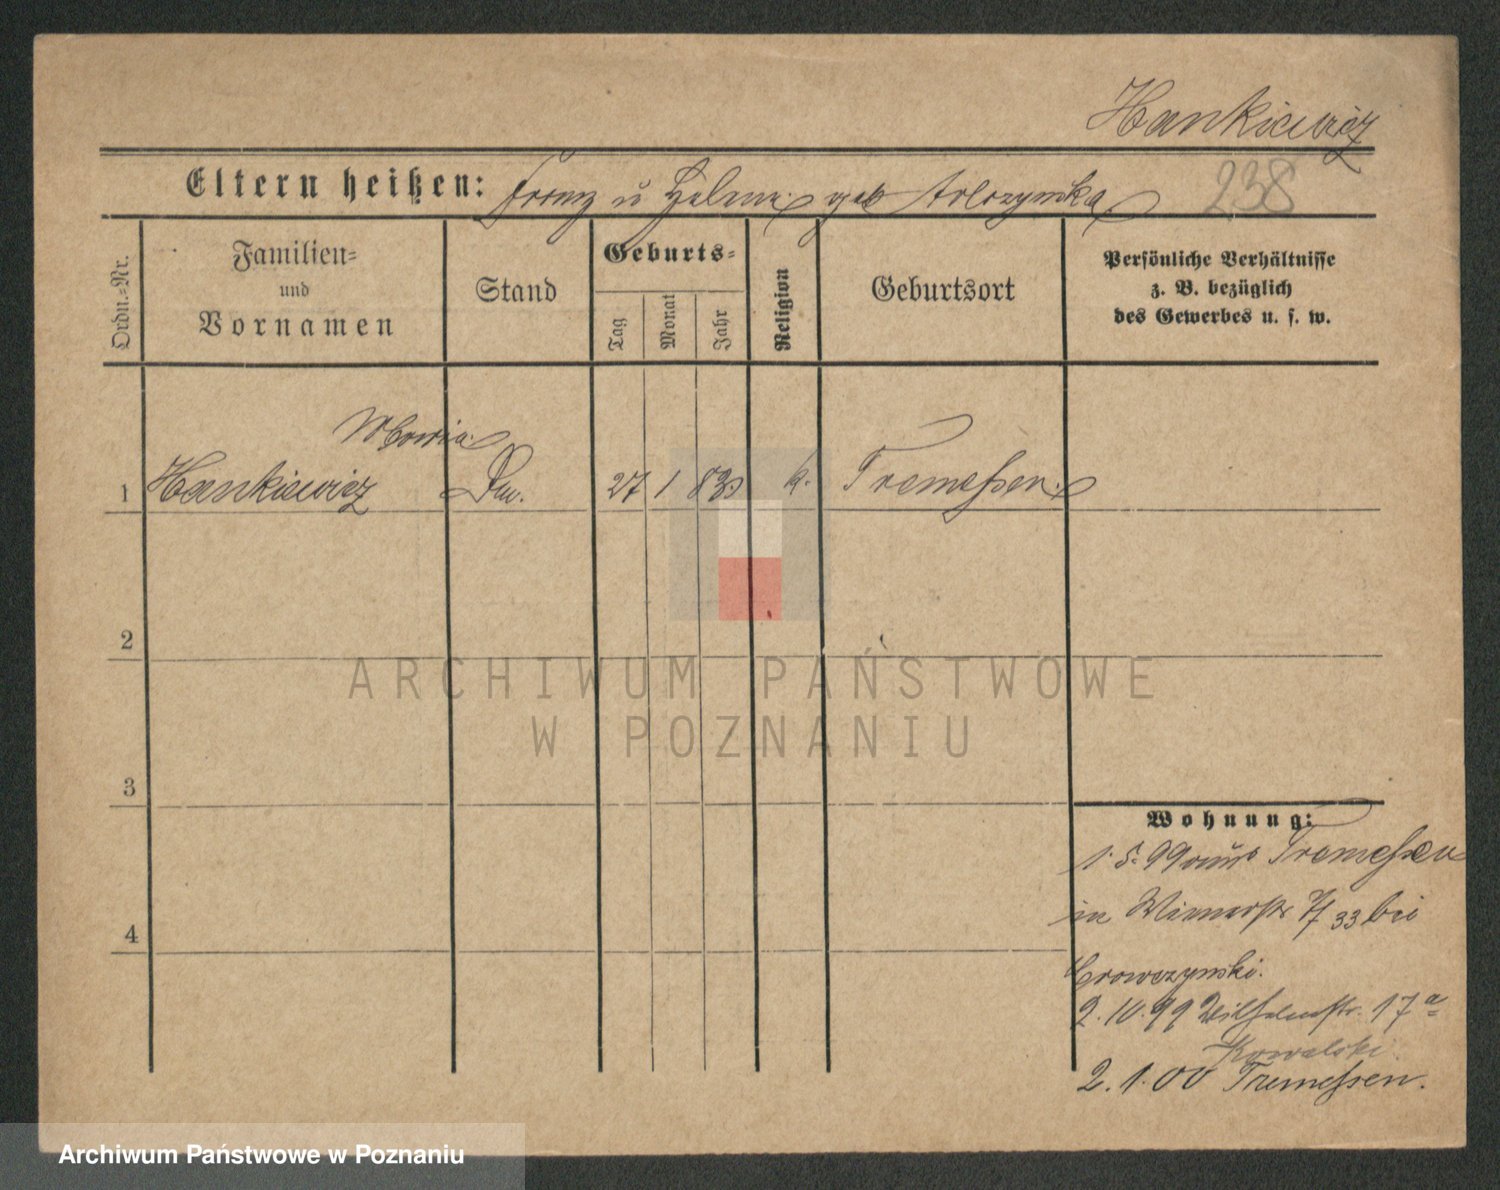 Hankiewicz
Eltern heißen: Franz u Helene geb
238
Ordn.-Nr.
Familien-
und
Vornamen
Stand
Geburts-
Tag
Monat
Jahr
Religion
Geburtsort
Persönliche Verhältnisse
z. B. bezüglich
des Gewerbes u. s. w.
Maria
1 Hankiewicz 27 1 83 k. Tremeßen
2
3
4
Wohnung:
1.5.99 aus Tremeßen
in 33 bei
2.10.99 Wilhelmstr. 17a
Kowalski
2.1.00 Tremeßen.
ARCHIWUM PAŃSTWOWE
W POZNANIU
Archiwum Państwowe w Poznaniu